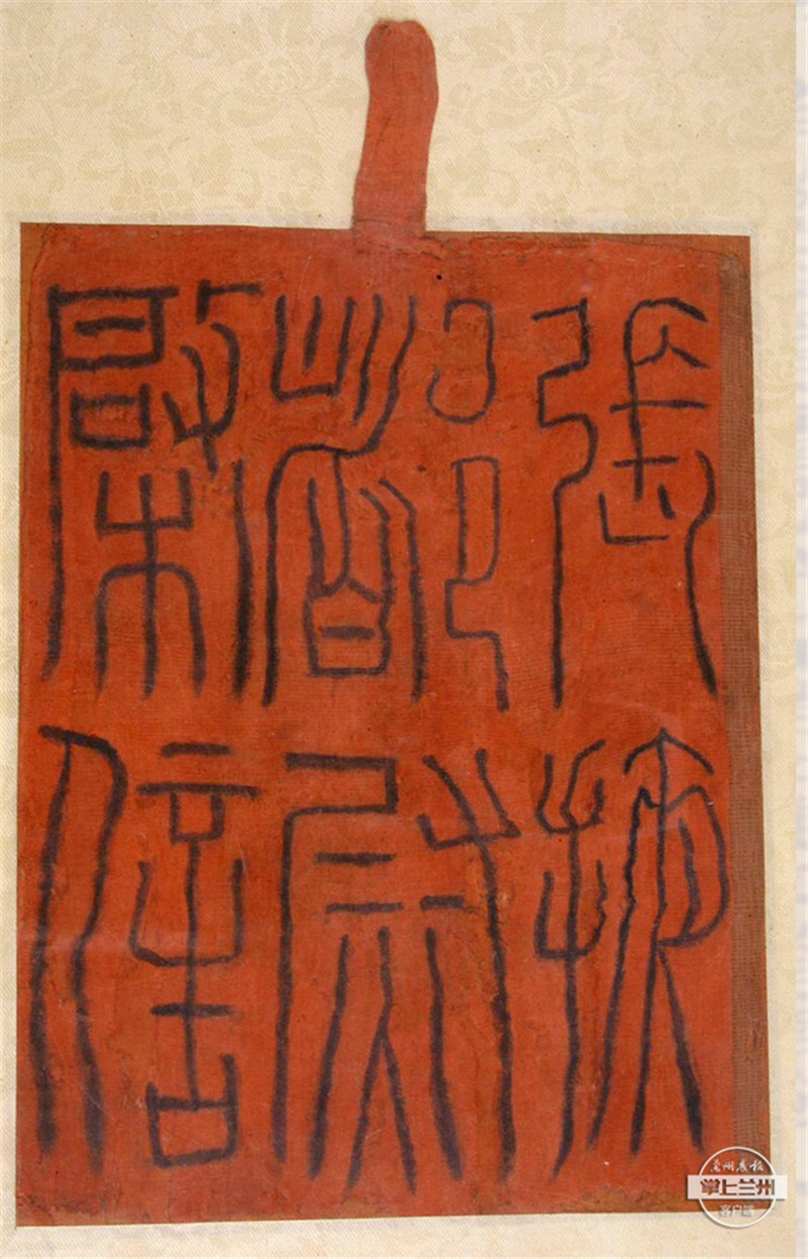 張掖
都尉
棨信
兰州晨报
掌上兰州
客户端